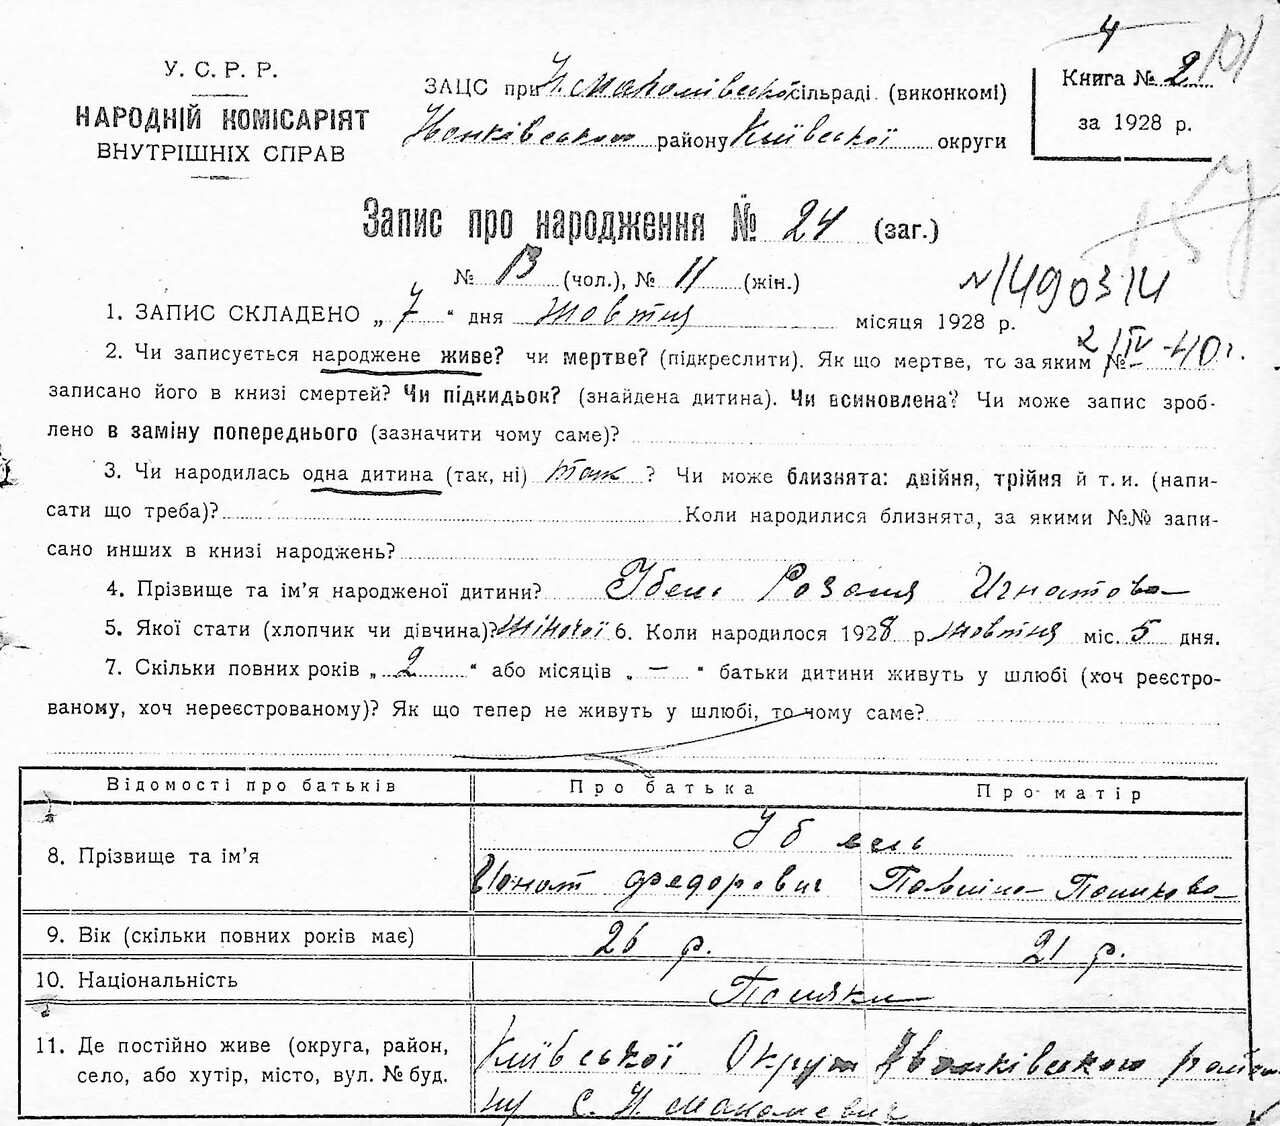 4
У. С. Р. Р.
НАРОДНІЙ КОМІСАРІЯТ
ВНУТРІШНІХ СПРАВ
ЗАЦС при Н. Макалівської сільраді (виконкомі)
району Київської округи
Книга № 2
за 1928 р.
101
Запис про народження № 24 (заг.)
№ 13 (чол.), № 11 (жін.)
N1490314
1. ЗАПИС СКЛАДЕНО „ 7 “ дня Жовтня місяця 1928 р.
2/IV-40 г.
2. Чи записується народжене живе? чи мертве? (підкреслити). Як що мертве, то за яким №
записано його в книзі смертей? Чи підкидьок? (знайдена дитина). Чи всиновлена? Чи може запис зроб-
лено в заміну попереднього (зазначити чому саме)?
3. Чи народилась одна дитина (так, ні) так ? Чи може близнята: двійня, трійня й т. и. (напи-
сати що треба)? Коли народилися близнята, за якими №№ запи-
сано инших в книзі народжень?
4. Прізвище та ім’я народженої дитини? Розалія Игнатова
5. Якої стати (хлопчик чи дівчина)? Жіночої 6. Коли народилося 1928 р. жовтня міс. 5 дня.
7. Скільки повних років „ 2 “ або місяців „ — “ батьки дитини живуть у шлюбі (хоч реєстро-
ваному, хоч нереєстрованому)? Як що тепер не живуть у шлюбі, то чому саме?
Відомості про батьків Про батька Про матір
8. Прізвище та ім’я
Федорович
9. Вік (скільки повних років має) 26 р. 21 р.
10. Національність Поляки
11. Де постійно живе (округа, район,
село, або хутір, місто, вул. № буд.
Київської Округи
ну с. Н.